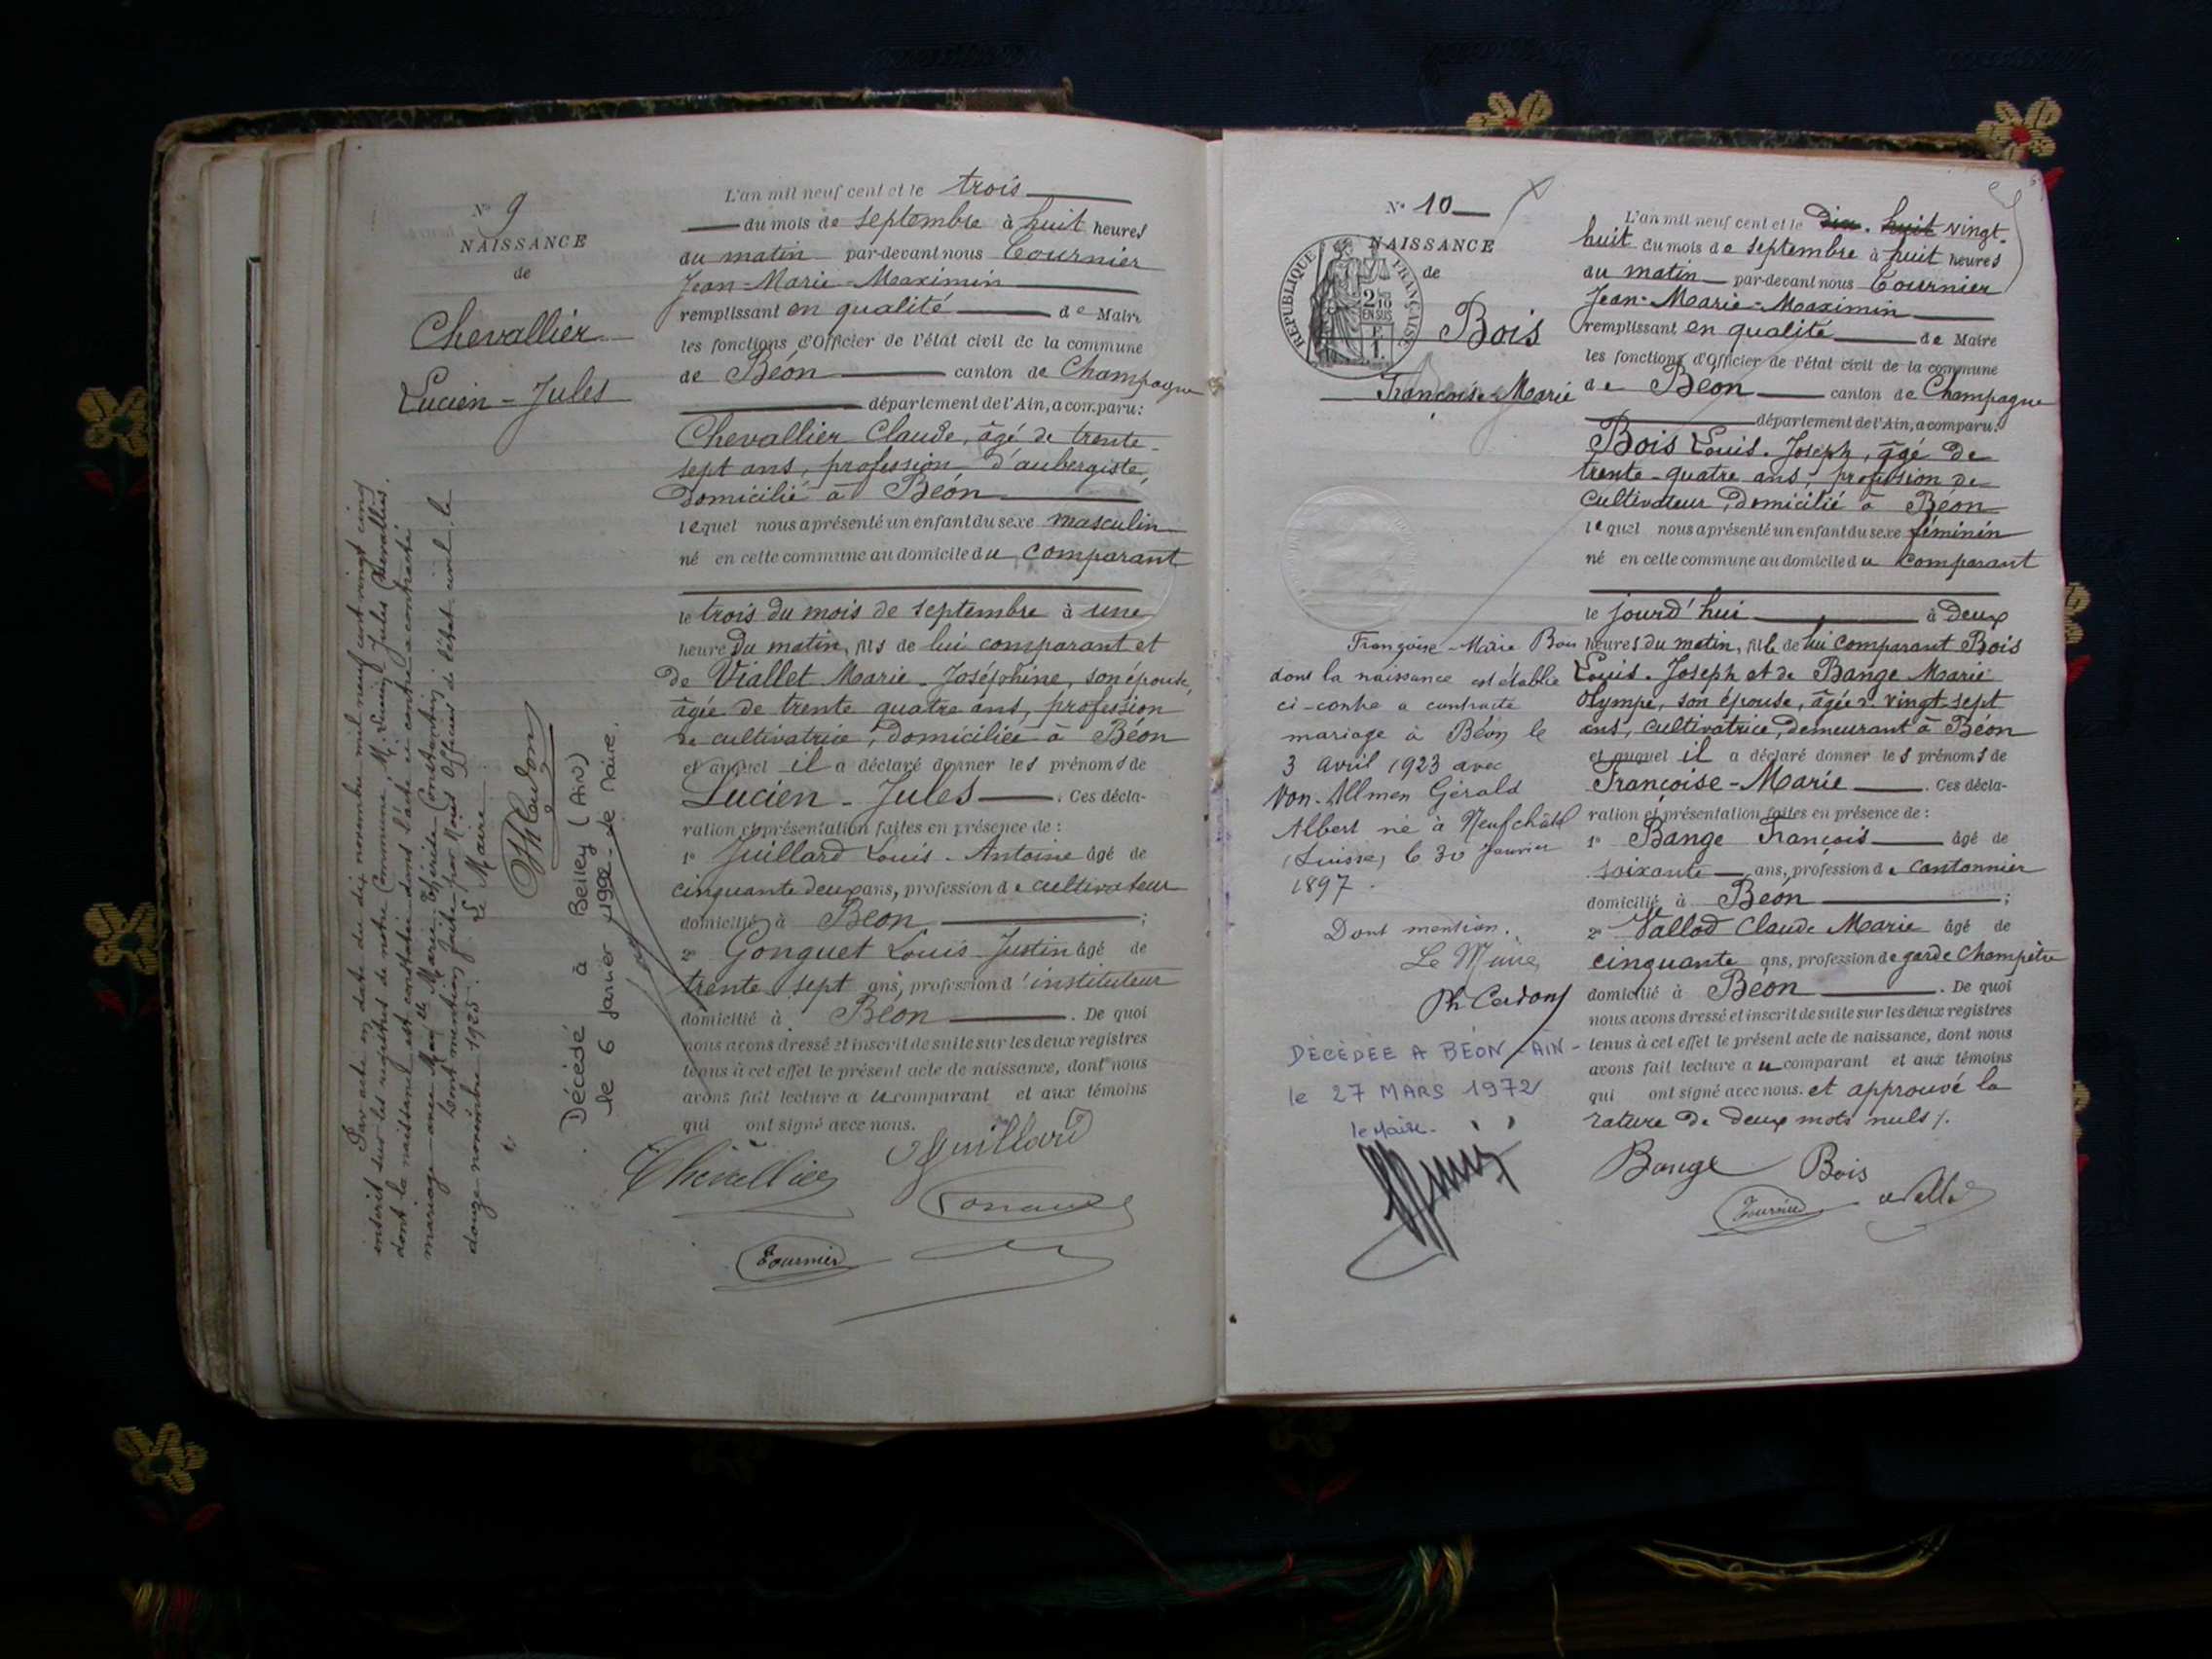 N° 9
NAISSANCE
de
Chevallier
Lucien - Jules
Par acte en date du dix novembre mil neuf cent vingt cinq
inscrit sur les registres de notre Commune, M. Lucien Jules Chevallier
dont la naissance est constatée dans l'acte ci-contre a contracté
mariage avec Marie
Dont mention faite par Nous Officier de l'état civil le
douze novembre 1925. Le Maire
Décédé à Belley (Ain)
le 6 Janvier le Maire.
L'an mil neuf cent et le trois
du mois de septembre à huit heures
du matin par-devant nous Tournier
Jean-Marie-Maximin
remplissant en qualité de Maire
les fonctions d'Officier de l'état civil de la commune
de Béon canton de Champagne
département de l'Ain, a comparu:
Chevallier Claude, âgé de trente-
sept ans, profession d'aubergiste,
domicilié à Béon
lequel nous a présenté un enfant du sexe masculin
né en cette commune au domicile du comparant
le trois du mois de septembre à une
heure du matin, fils de lui comparant et
de Viallet Marie-Joséphine, son épouse,
âgée de trente quatre ans, profession
de cultivatrice, domiciliée à Béon
et auquel il a déclaré donner les prénoms de
Lucien - Jules. Ces décla-
ration et présentation faites en présence de :
1° Juillard Louis-Antoine âgé de
cinquante deux ans, profession de cultivateur
domicilié à Béon ;
2° Gonguet Louis-Justin âgé de
trente sept ans, profession d'instituteur
domicilié à Béon. De quoi
nous avons dressé et inscrit de suite sur les deux registres
tenus à cet effet le présent acte de naissance, dont nous
avons fait lecture au comparant et aux témoins
qui ont signé avec nous.
Chevallier Juillard
Tournier
N° 10
NAISSANCE
de
RÉPUBLIQUE FRANÇAISE
2/10
EN SUS
Bois
Françoise-Marie
Françoise-Marie Bois
dont la naissance est établie
ci-contre a contracté
mariage à Béon le
3 avril 1923 avec
Von-Allmen Gérald
Albert né à Neufchâtel
(Suisse) le 30 Janvier
1897.
Dont mention.
Le Maire,
DÉCÉDÉE A BÉON - AIN -
le 27 MARS 1972
le Maire.
L'an mil neuf cent et le dix-huit vingt-
huit du mois de septembre à huit heures
du matin par-devant nous Tournier
Jean-Marie-Maximin
remplissant en qualité de Maire
les fonctions d'Officier de l'état civil de la commune
de Béon canton de Champagne
département de l'Ain, a comparu:
Bois Louis-Joseph, âgé de
trente-quatre ans, profession de
cultivateur, domicilié à Béon
lequel nous a présenté un enfant du sexe féminin
né en cette commune au domicile du comparant
le jourd'hui à deux
heures du matin, fille de lui comparant Bois
Louis-Joseph et de Bange Marie
Olympe, son épouse, âgée de vingt-sept
ans, cultivatrice, demeurant à Béon
et auquel il a déclaré donner les prénoms de
Françoise-Marie. Ces décla-
ration et présentation faites en présence de :
1° Bange François âgé de
soixante ans, profession de cantonnier
domicilié à Béon ;
2° Vallod Claude Marie âgé de
cinquante ans, profession de garde champêtre
domicilié à Béon. De quoi
nous avons dressé et inscrit de suite sur les deux registres
tenus à cet effet le présent acte de naissance, dont nous
avons fait lecture au comparant et aux témoins
qui ont signé avec nous. et approuvé la
rature de deux mots nuls.
Bange Bois
Tournier